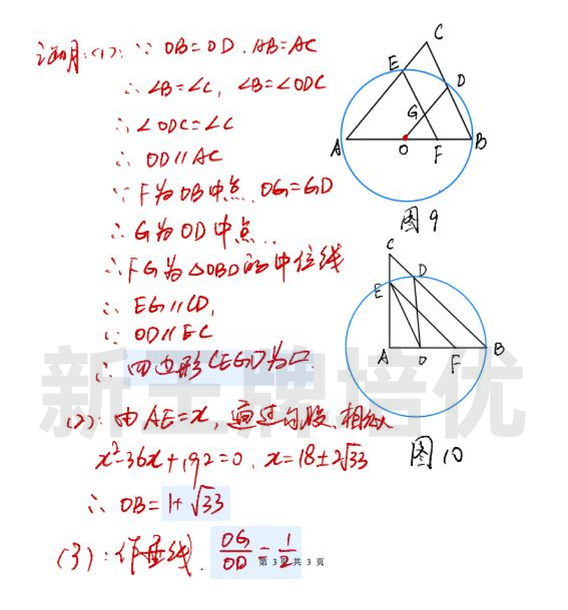 证明:(1):∵ OB=OD.AB=AC
∴ ∠B=∠C, ∠B=∠ODC
∴ ∠ODC=∠C
∴ OD∥AC
∵ F为OB中点.OG=GD
∴ G为OD中点.
∴ FG为△OBD的中位线
∴ EG∥CD,
∵ OD∥EC
∴ 四边形CEGD为▱.
(2):由AE=x,通过勾股、相似
x²-36x+192=0.x=18±2√33
∴ OB=1+√33
(3):作垂线.OG/OD=1/2
C
E
D
G
A
O
F
B
图9
C
D
E
A
O
F
B
图10
新王牌培优
第 3 页 共 3 页